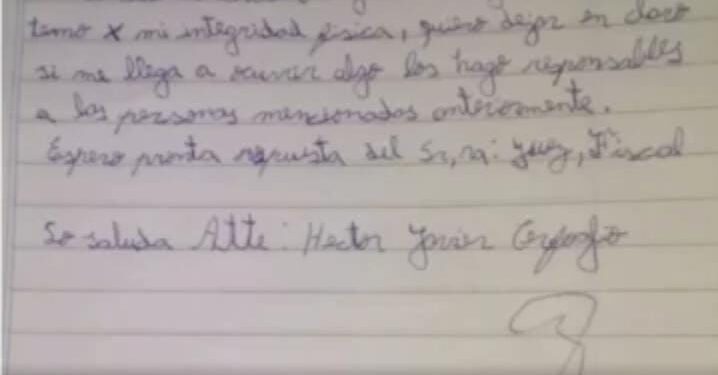 temo x mi integridad fisica, quiero dejar en claro
si me llega a ocurrir algo los hago responsables
a las personas mencionadas anteriormente.
Espero pronta repuesta del Sr, ra: juez, Fiscal
Se saluda Atte: Hector Javier